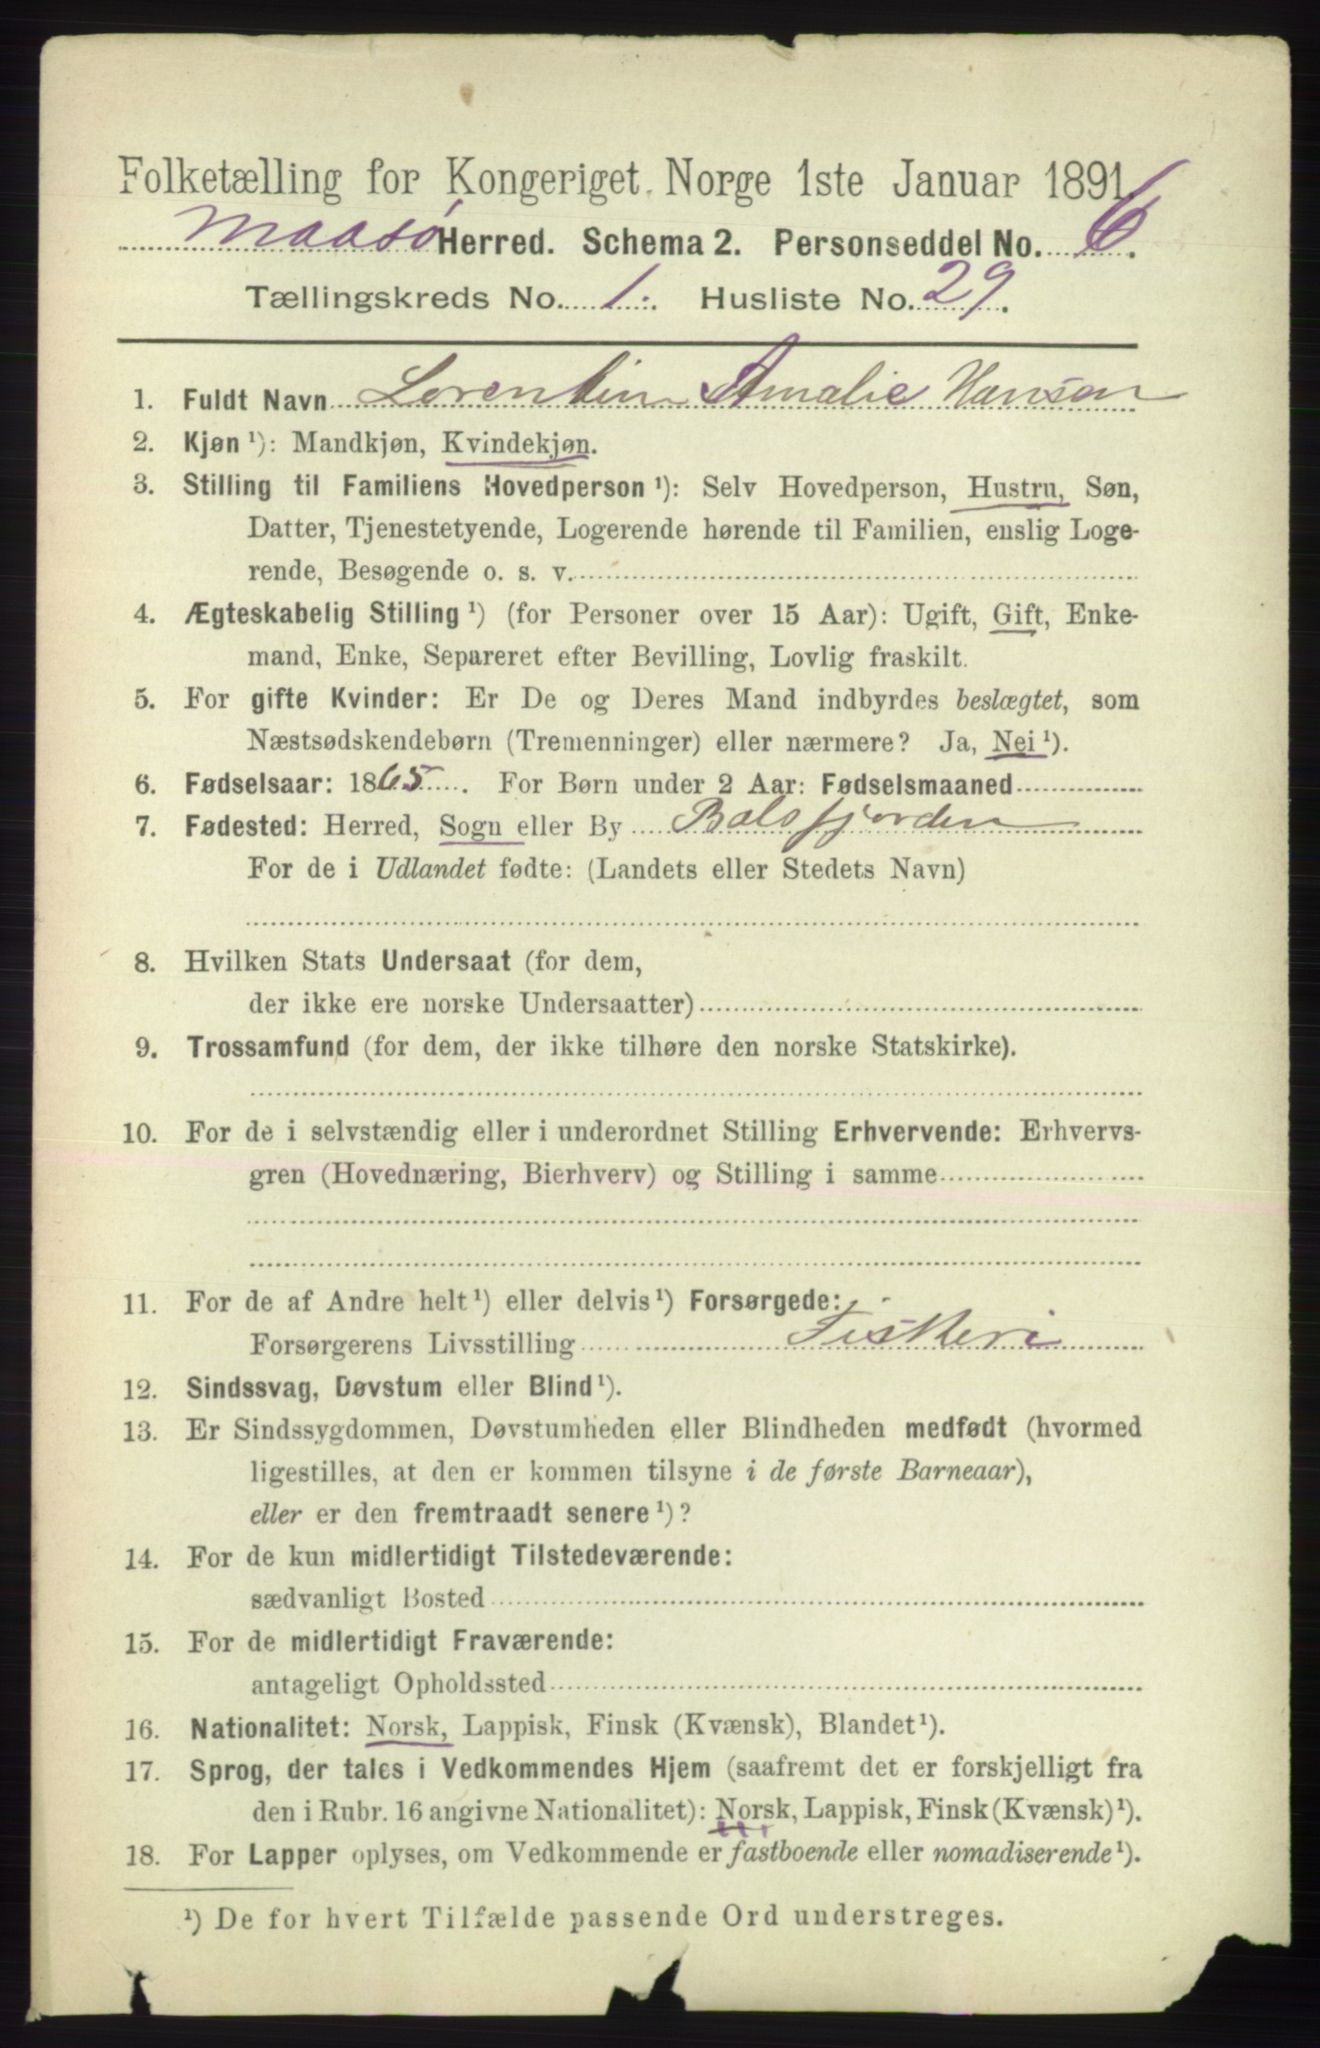 Folketælling for Kongeriget Norge 1ste Januar 1891.
Maasø Herred. Schema 2. Personseddel No. 6.
Tællingskreds No. 1. Husliste No. 29.
1. Fuldt Navn Lorentine Amalie Hansen
2. Kjøn ¹): Mandkjøn, Kvindekjøn.
3. Stilling til Familiens Hovedperson ¹): Selv Hovedperson, Hustru, Søn,
Datter, Tjenestetyende, Logerende hørende til Familien, enslig Loge-
rende, Besøgende o. s. v.
4. Ægteskabelig Stilling ¹) (for Personer over 15 Aar): Ugift, Gift, Enke-
mand, Enke, Separeret efter Bevilling, Lovlig fraskilt.
5. For gifte Kvinder: Er De og Deres Mand indbyrdes beslægtet, som
Næstsødskendebørn (Tremenninger) eller nærmere? Ja, Nei ¹).
6. Fødselsaar: 1865. For Børn under 2 Aar: Fødselsmaaned
7. Fødested: Herred, Sogn eller By Balsfjorden
For de i Udlandet fødte: (Landets eller Stedets Navn)
8. Hvilken Stats Undersaat (for dem,
der ikke ere norske Undersaatter)
9. Trossamfund (for dem, der ikke tilhøre den norske Statskirke).
10. For de i selvstændig eller i underordnet Stilling Erhvervende: Erhvervs-
gren (Hovednæring, Bierhverv) og Stilling i samme
11. For de af Andre helt ¹) eller delvis ¹) Forsørgede:
Forsørgerens Livsstilling Fiskeri
12. Sindssvag, Døvstum eller Blind ¹).
13. Er Sindssygdommen, Døvstumheden eller Blindheden medfødt (hvormed
ligestilles, at den er kommen tilsyne i de første Barneaar),
eller er den fremtraadt senere ¹)?
14. For de kun midlertidigt Tilstedeværende:
sædvanligt Bosted
15. For de midlertidigt Fraværende:
antageligt Opholdssted
16. Nationalitet: Norsk, Lappisk, Finsk (Kvænsk), Blandet ¹).
17. Sprog, der tales i Vedkommendes Hjem (saafremt det er forskjelligt fra
den i Rubr. 16 angivne Nationalitet): Norsk, Lappisk, Finsk (Kvænsk) ¹).
18. For Lapper oplyses, om Vedkommende er fastboende eller nomadiserende ¹).
¹) De for hvert Tilfælde passende Ord understreges.